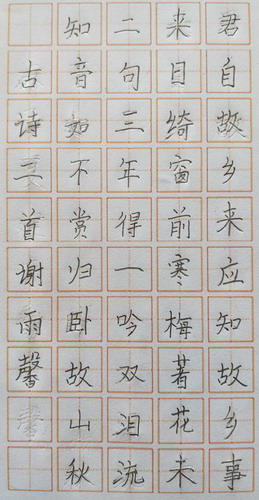 君自故乡来应知故乡事
来日绮窗前寒梅著花未
二句三年得一吟双泪流
知音如不赏归卧故山秋
古诗二首谢雨馨